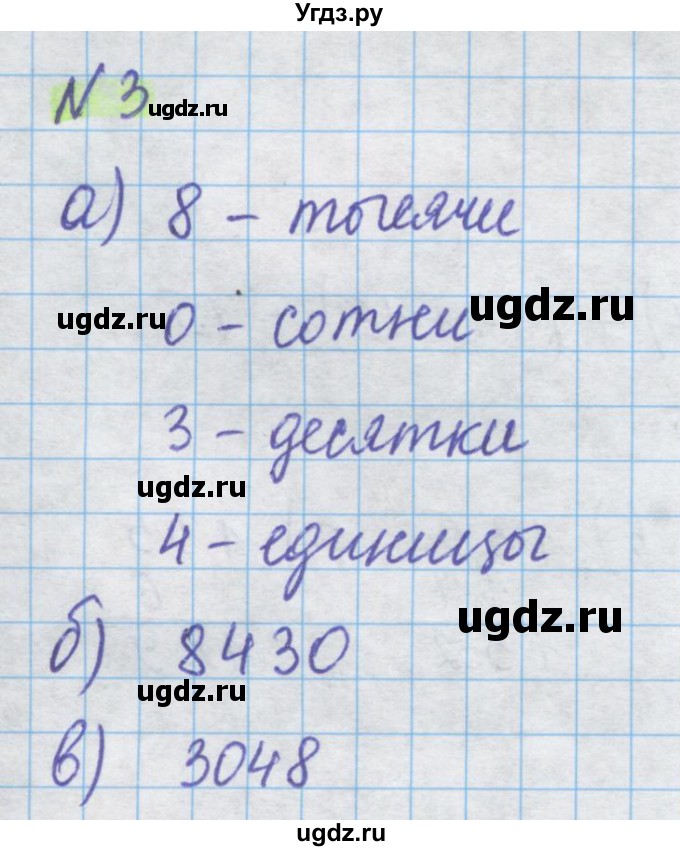 Угдз.ру
№ 3 ugdz.ru
а) 8 – тысячи
ugdz.ru
ugdz.ru 0 – сотни
3 – десятки
ugdz.ru
4 – единицы
ugdz.ru
б) 8430
ugdz.ru
в) 3048
ugdz.ru